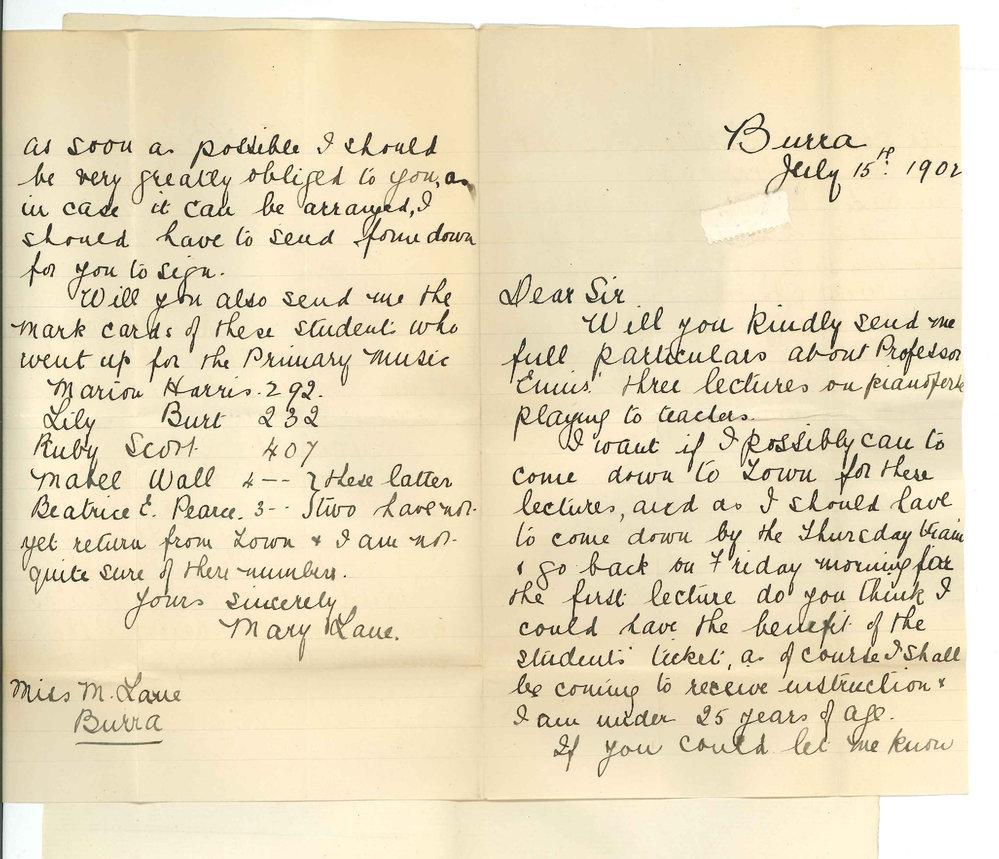 Burra
July 15th. 1902
Dear Sir
Will you kindly send me
full particulars about Professor
Ennis' three lectures on pianoforte
playing to teachers.
I want if I possibly can to
come down to Town for these
lectures, and as I should have
to come down by the Thursday train
& go back on Friday morning for
the first lecture do you think I
could have the benefit of the
students' ticket, as of course I shall
be coming to receive instruction &
I am under 25 years of age.
If you could let me know
as soon as possible I should
be very greatly obliged to you, as
in case it can be arranged, I
should have to send form down
for you to sign.
Will you also send me the
mark cards of these students who
went up for the Primary Music
Marion Harris. 292.
Lily Burt 232
Ruby Scott. 407
Mabel Wall 4-- } these latter
Beatrice E. Pearce. 3-- } two have not
yet return from Town & I am not
quite sure of there numbers.
Yours sincerely
Mary Lane.
Miss M. Lane
Burra